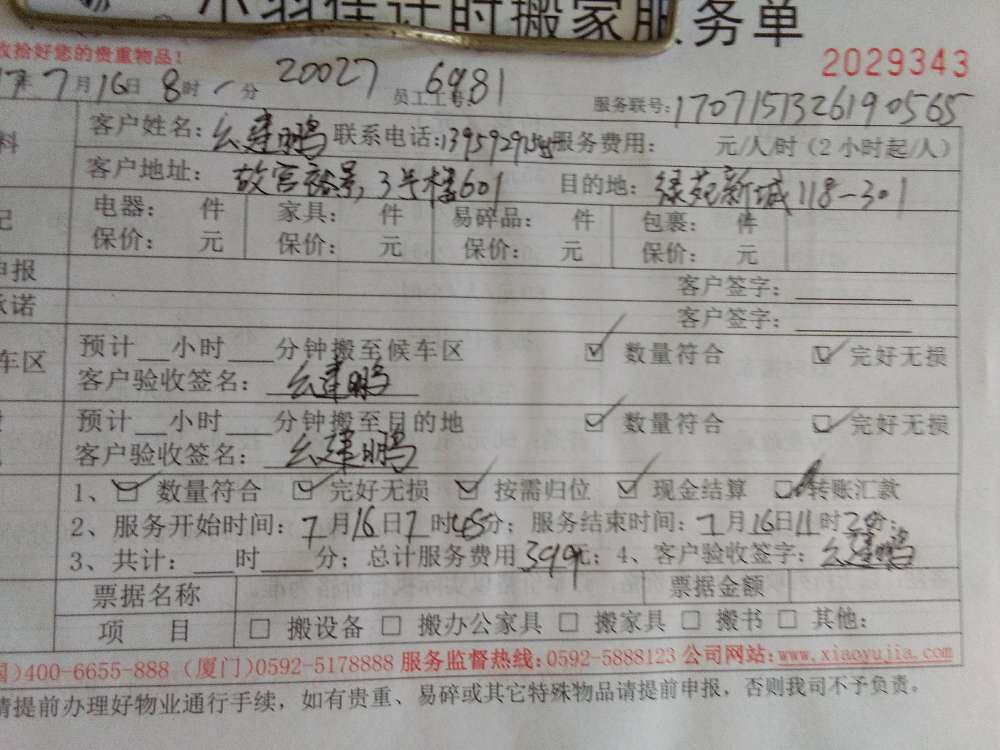 小羽佳计时搬家服务单
收拾好您的贵重物品! 2029343
17年7月16日8时 分 20027 员工工号:6981 服务联号:1707151326190565
料 客户姓名:幺建鹏 联系电话: 服务费用: 元/人/时(2小时起/人)
客户地址: 故宫裕景,3号楼601 目的地: 绿苑新城118-301
记 电器: 件 家具: 件 易碎品: 件 包裹: 件
保价: 元 保价: 元 保价: 元 保价: 元
申报 客户签字:
承诺 客户签字:
车区 预计__小时__分钟搬至候车区 ☑ 数量符合 ☑ 完好无损
客户验收签名: 幺建鹏
预计__小时__分钟搬至目的地 ☑ 数量符合 ☑ 完好无损
客户验收签名: 幺建鹏
1、☑ 数量符合 ☑ 完好无损 ☑ 按需归位 ☑ 现金结算 □ 转账汇款
2、服务开始时间:7月16日7时45分;服务结束时间:7月16日11时 分;
3、共计: 时 分;总计服务费用399元;4、客户验收签字:幺建鹏
票据名称 票据金额
项 目 □ 搬设备 □ 搬办公家具 □ 搬家具 □ 搬书 □ 其他:
国)400-6655-888 (厦门)0592-5178888 服务监督热线:0592-5888123 公司网站:www.xiaoyujia.com
请提前办理好物业通行手续,如有贵重、易碎或其它特殊物品请提前申报,否则我司不予负责。